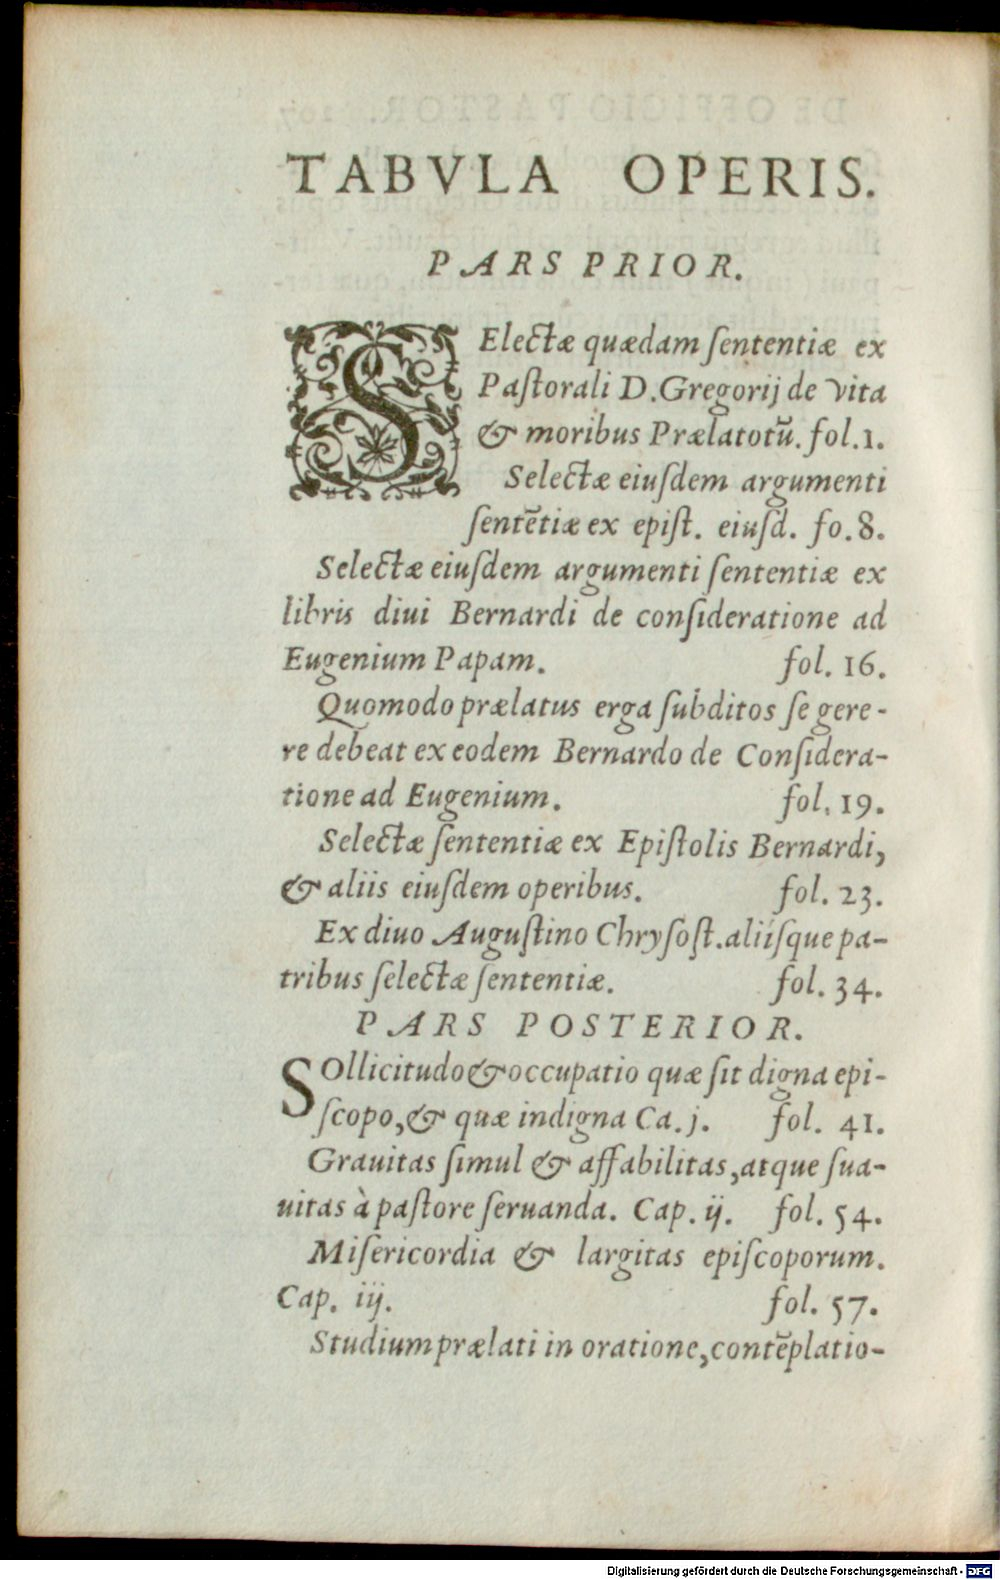 TABVLA OPERIS.
PARS PRIOR.
SElectæ quædam ſententiæ ex
Paſtorali D. Gregorij de vita
& moribus Prælatotū. fol. 1.
Selectæ eiuſdem argumenti
ſentētiæ ex epiſt. eiuſd. fo. 8.
Selectæ eiuſdem argumenti ſententiæ ex
libris diui Bernardi de conſideratione ad
Eugenium Papam. fol. 16.
Quomodo prælatus erga ſubditos ſe gere-
re debeat ex eodem Bernardo de Conſidera-
tione ad Eugenium. fol. 19.
Selectæ ſententiæ ex Epiſtolis Bernardi,
& aliis eiuſdem operibus. fol. 23.
Ex diuo Auguſtino Chryſoſt. aliiſque pa-
tribus ſelectæ ſententiæ. fol. 34.
PARS POSTERIOR.
SOllicitudo & occupatio quæ ſit digna epi-
ſcopo, & quæ indigna Ca. j. fol. 41.
Grauitas ſimul & affabilitas, atque ſua-
uitas à paſtore ſeruanda. Cap. ij. fol. 54.
Miſericordia & largitas epiſcoporum.
Cap. iij. fol. 57.
Studium prælati in oratione, contēplatio-
Digitalisierung gefördert durch die Deutsche Forschungsgemeinschaft - DFG